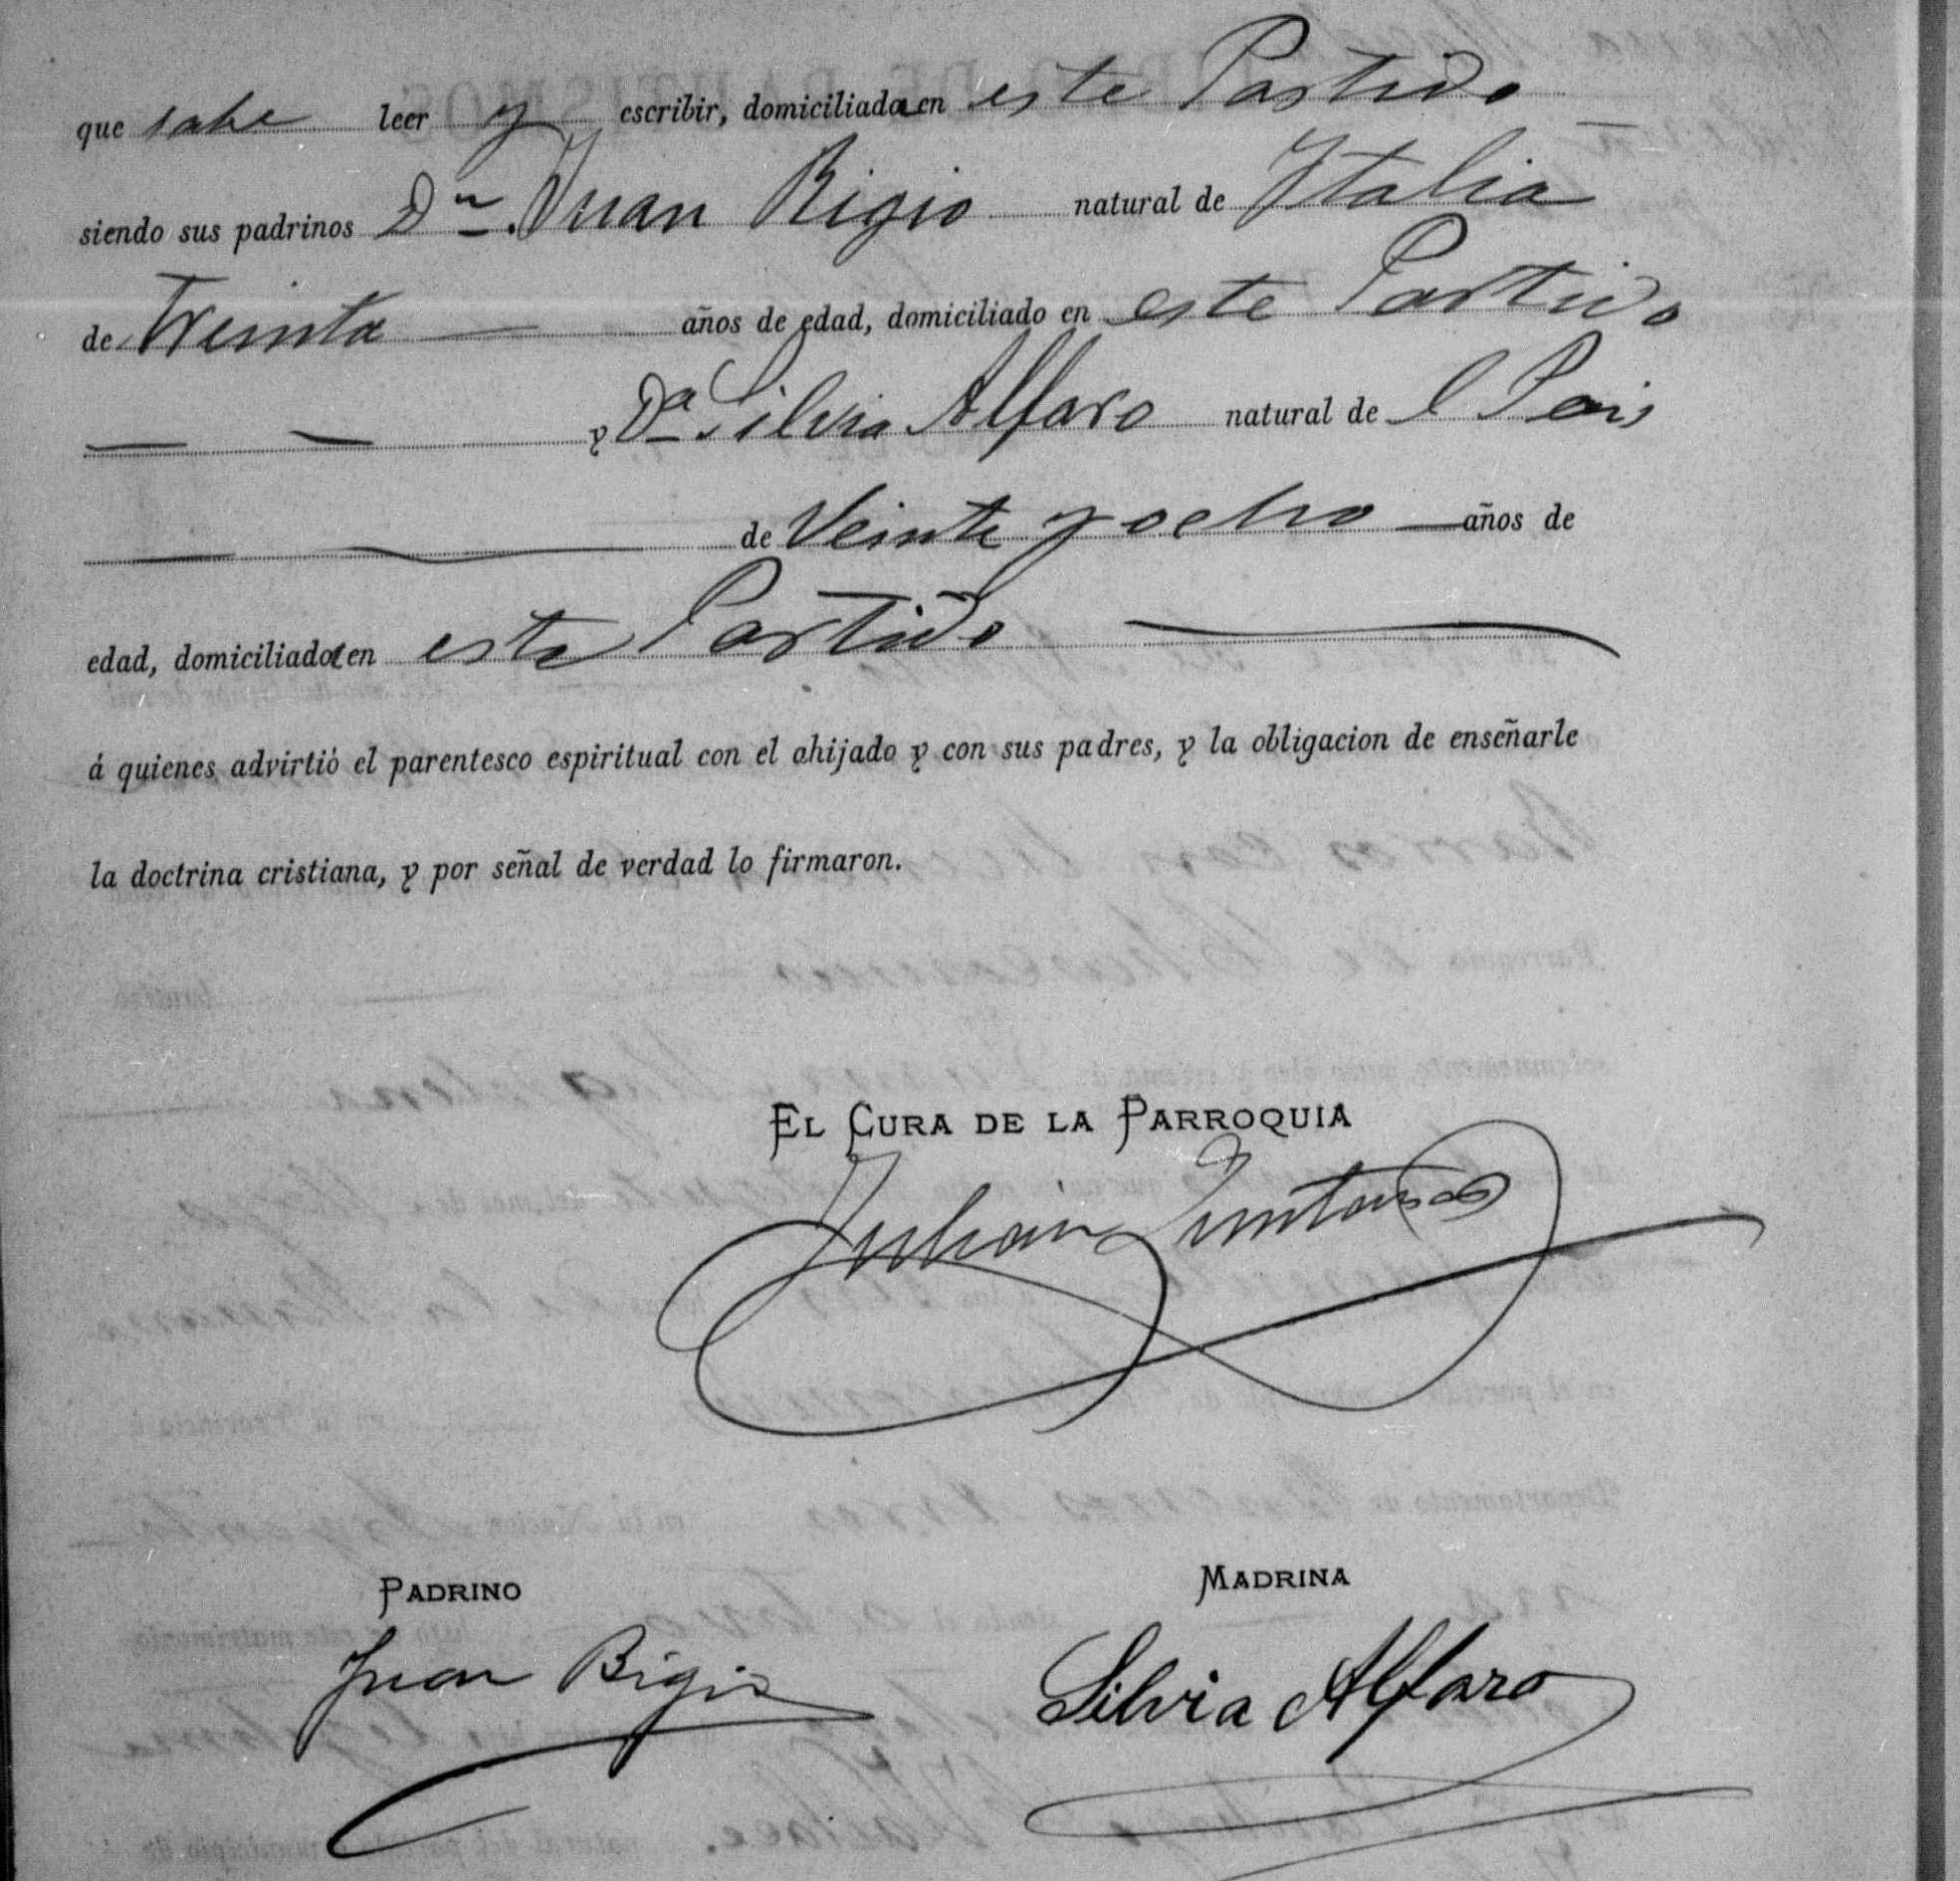 que sabe leer y escribir, domiciliada en este Partido
siendo sus padrinos Dn. Juan Bigio natural de Italia
de Treinta años de edad, domiciliado en este Partido
y Da Silvia Alfaro natural de l Pais
de Veinte y ocho años de
edad, domiciliada en este Partido
á quienes advirtió el parentesco espiritual con el ahijado y con sus padres, y la obligacion de enseñarle
la doctrina cristiana, y por señal de verdad lo firmaron.
EL CURA DE LA PARROQUIA
Julian Quintana
PADRINO MADRINA
Juan Bigio Silvia Alfaro